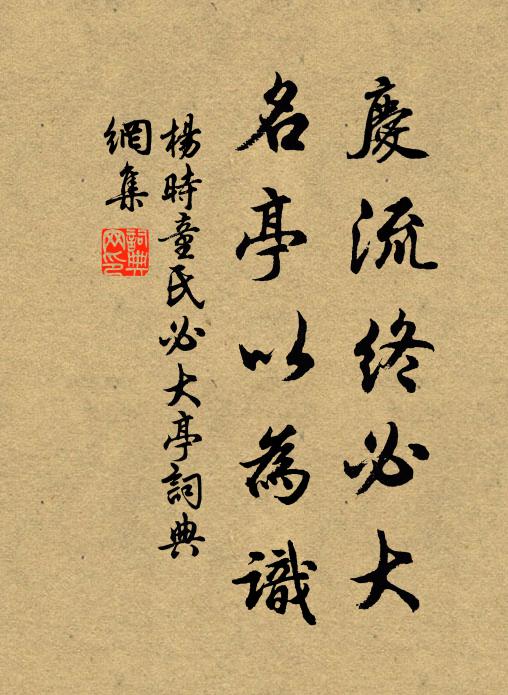 慶流終必大
名亭以為識
楊時童氏必大亭詞典
網集
詞典
网印